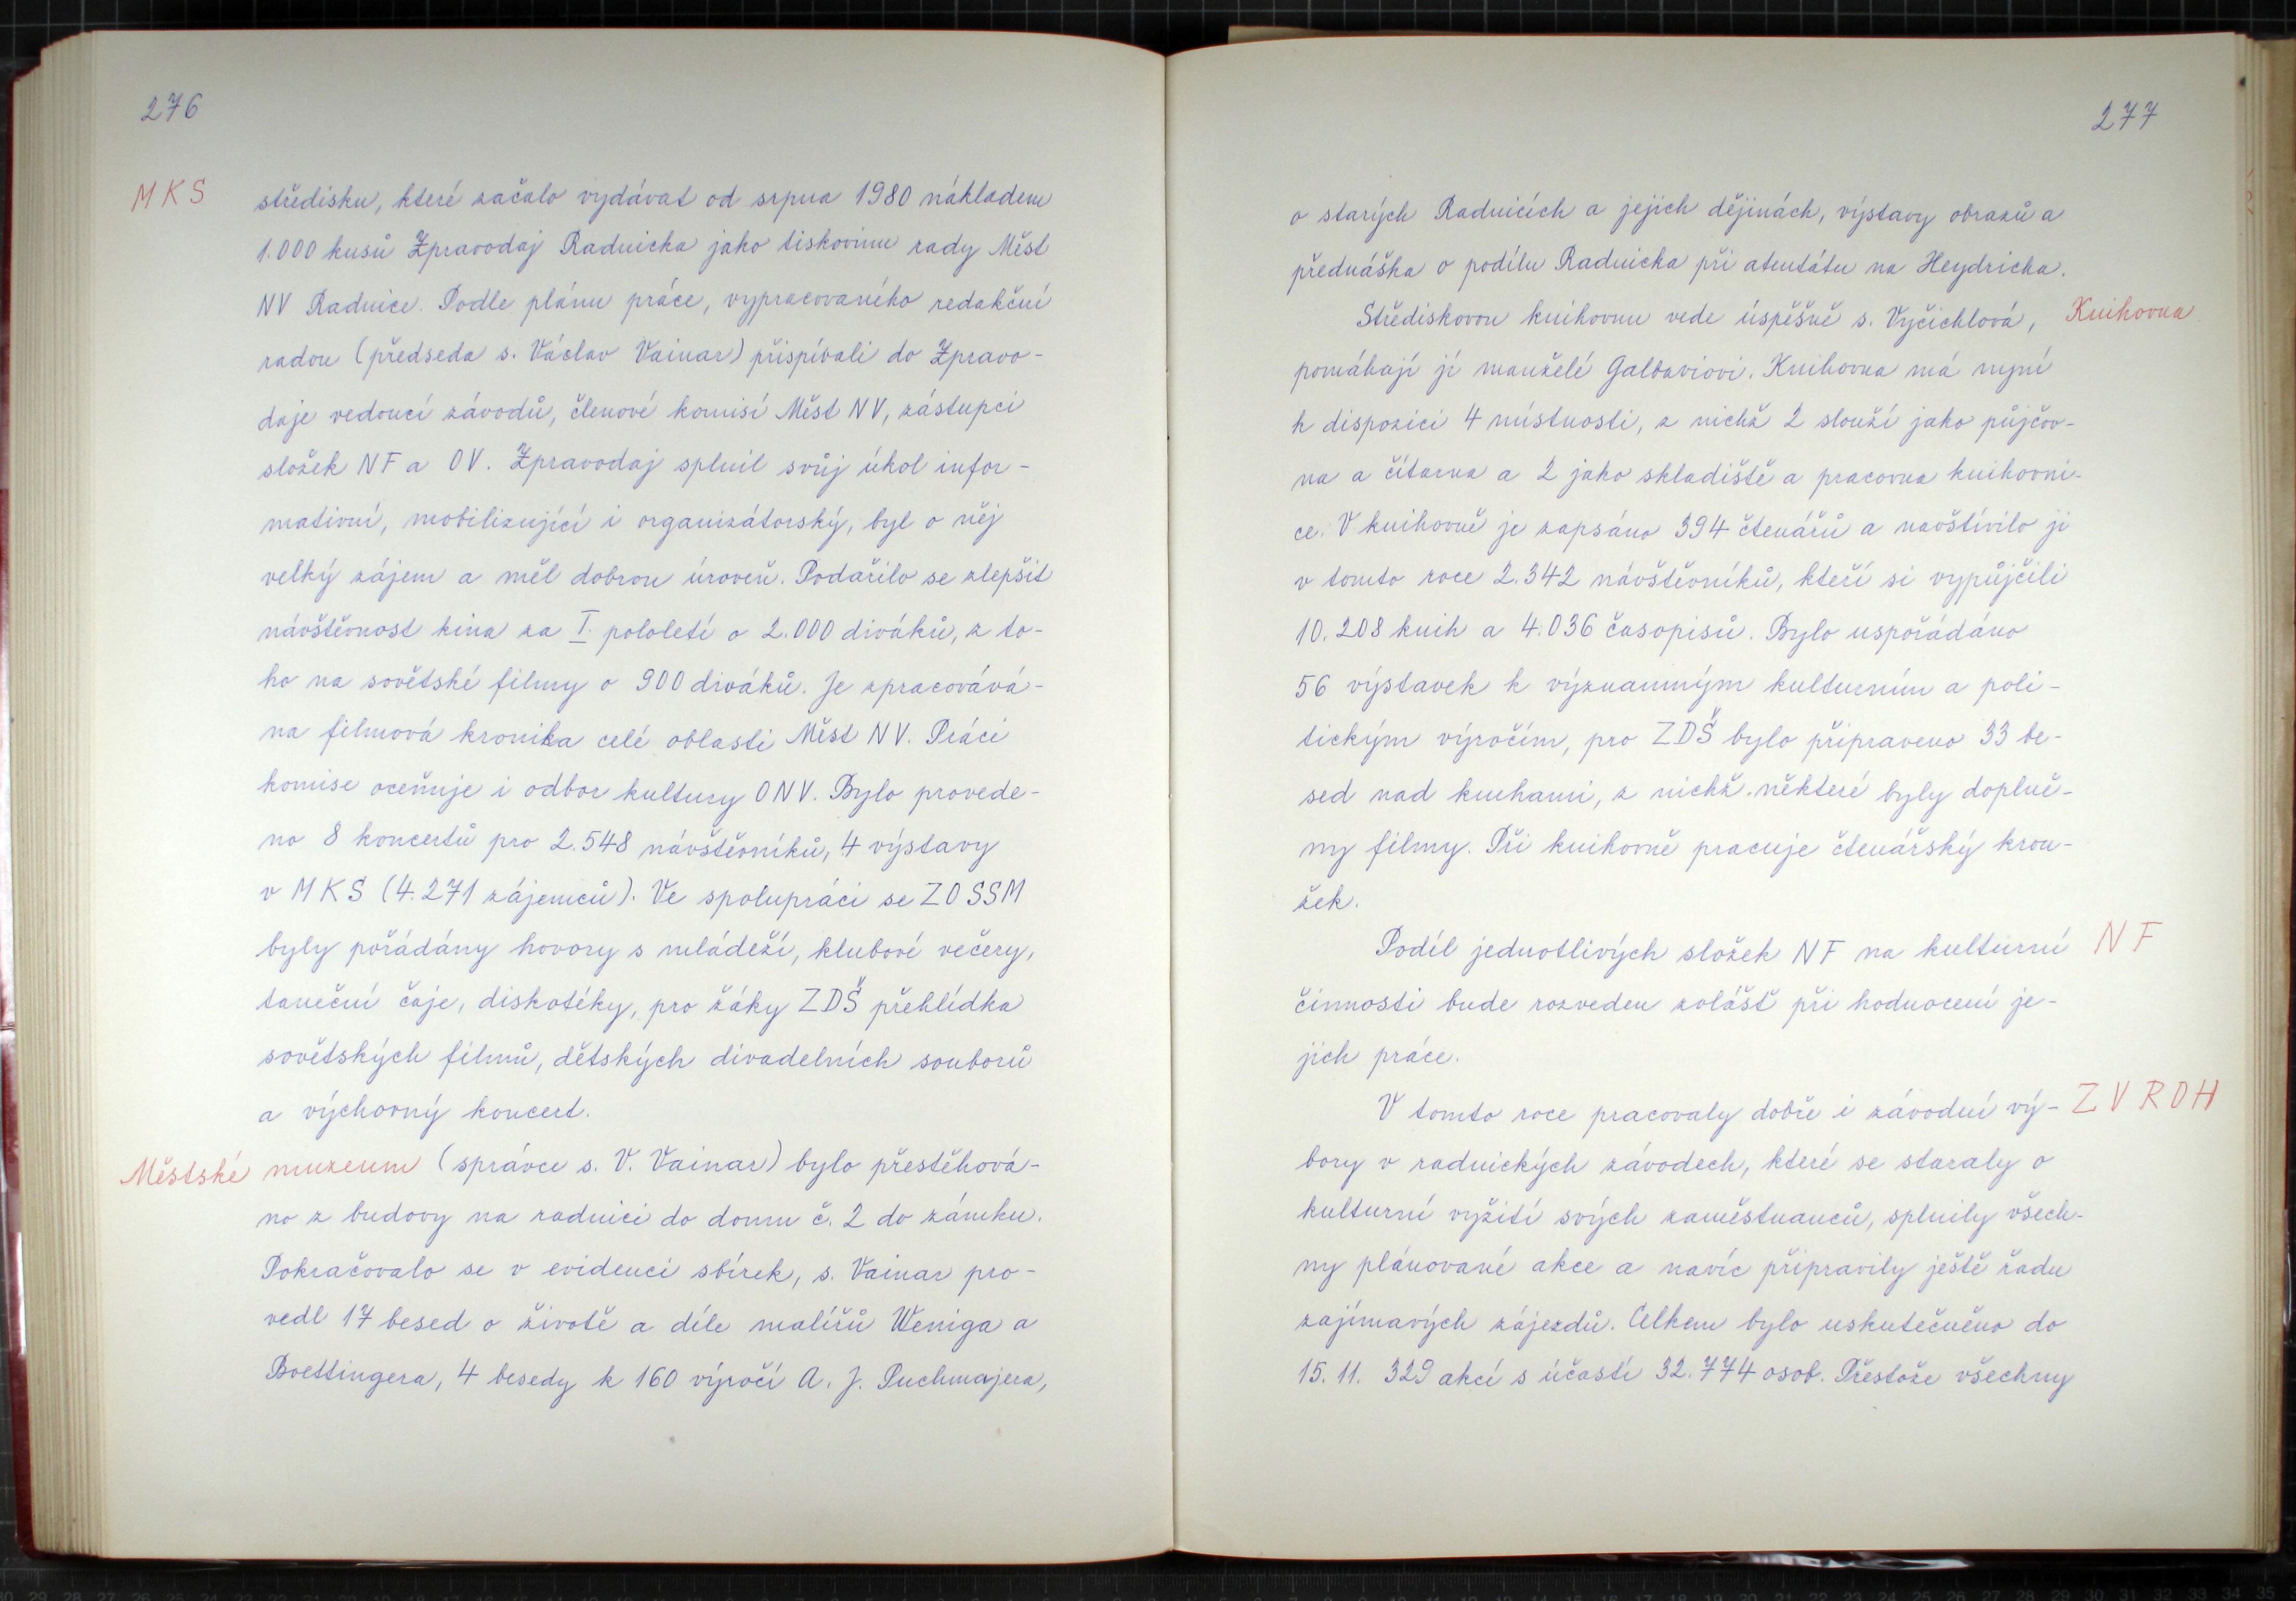 276
MKS středisku, které začalo vydávat od srpna 1980 nákladem
1.000 kusů Zpravodaj Radnicka jako tiskovinu rady Měst
NV Radnice. Podle plánu práce, vypracovaného redakční
radou (předseda s. Václav Vainar) přispívali do Zpravo-
daje vedoucí závodů, členové komisí Měst NV, zástupci
složek NF a OV. Zpravodaj splnil svůj úkol infor-
mativní, mobilizující i organizátorský, byl o něj
velký zájem a měl dobrou úroveň. Podařilo se zlepšit
návštěvnost kina za I. pololetí o 2.000 diváků, z to-
ho na sovětské filmy o 900 diváků. Je zpracovává-
na filmová kronika celé oblasti Měst NV. Práci
komise oceňuje i odbor kultury ONV. Bylo provede-
no 8 koncertů pro 2.548 návštěvníků, 4 výstavy
v MKS (4.271 zájemců). Ve spolupráci se ZO SSM
byly pořádány hovory s mládeží, klubové večery,
taneční čaje, diskotéky, pro žáky ZDŠ přehlídka
sovětských filmů, dětských divadelních souborů
a výchovný koncert.
Městské muzeum (správce s. V. Vainar) bylo přestěhová-
no z budovy na radnici do domu č. 2 do zámku.
Pokračovalo se v evidenci sbírek, s. Vainar pro-
vedl 17 besed o životě a díle malířů Weniga a
Boettingera, 4 besedy k 160 výročí A. J. Puchmajera,
277
o starých Radnicích a jejich dějinách, výstavy obrazů a
přednáška o podílu Radnicka při atentátu na Heydricha.
Střediskovou knihovnu vede úspěšně s. Vyčichlová, Knihovna
pomáhají jí manželé Galbavioví. Knihovna má nyní
k dispozici 4 místnosti, z nichž 2 slouží jako půjčov-
na a čítarna a 2 jako skladiště a pracovna knihovni-
ce. V knihovně je zapsáno 394 čtenářů a navštívilo ji
v tomto roce 2.342 návštěvníků, kteří si vypůjčili
10.208 knih a 4.036 časopisů. Bylo uspořádáno
56 výstavek k významným kulturním a poli-
tickým výročím, pro ZDŠ bylo připraveno 33 be-
sed nad knihami, z nichž některé byly doplně-
ny filmy. Při knihovně pracuje čtenářský krou-
žek.
Podíl jednotlivých složek NF na kulturní NF
činnosti bude rozveden zvlášť při hodnocení je-
jich práce.
V tomto roce pracovaly dobře i závodní vý- ZV ROH
bory v radnických závodech, které se staraly o
kulturní vyžití svých zaměstnanců, splnily všech-
ny plánované akce a navíc připravily ještě řadu
zajímavých zájezdů. Celkem bylo uskutečněno do
15. 11. 329 akcí s účastí 32.774 osob. Přestože všechny